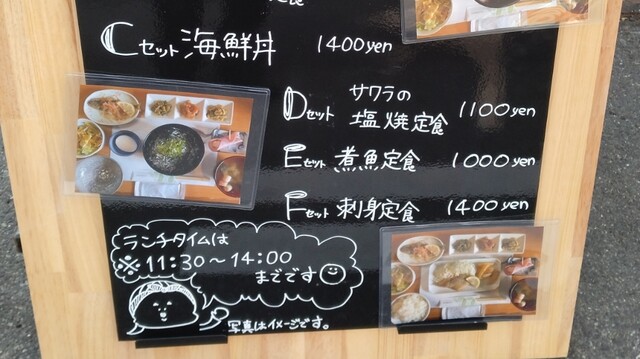 Cセット 海鮮丼 1400yen
Dセット サワラの
塩焼定食 1100yen
Eセット 煮魚定食 1000yen
Fセット 刺身定食 1400yen
ランチタイムは
※11:30～14:00
までです
写真はイメージです。